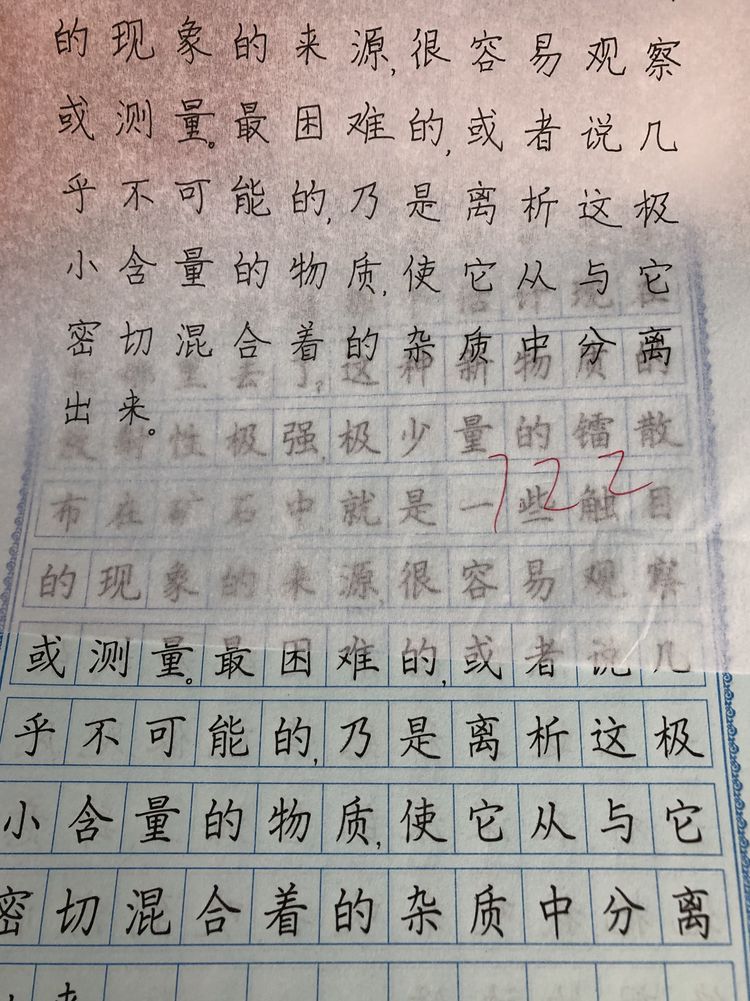 的现象的来源,很容易观察
或测量。最困难的,或者说几
乎不可能的,乃是离析这极
小含量的物质,使它从与它
密切混合着的杂质中分离
出来。
这种新物质的
性极强,极少量的镭散
布在矿石中就是一些触目
722
的现象的来源,很容易观察
或测量。最困难的,或者说几
乎不可能的,乃是离析这极
小含量的物质,使它从与它
密切混合着的杂质中分离
来